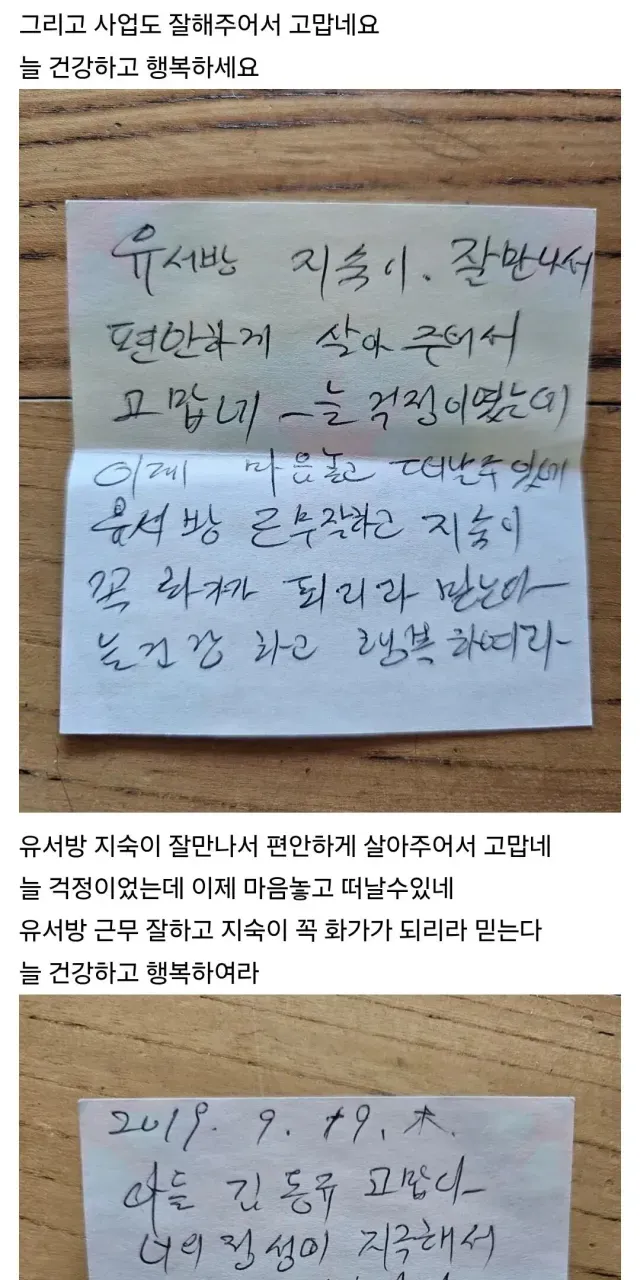 그리고 사업도 잘해주어서 고맙네요
늘 건강하고 행복하세요
유서방 지숙이. 잘만나서
편안하게 살아 주어서
고맙네 늘 걱정이였는데
이제 마음놓고 떠날수있네
유서방 근무잘하고 지숙이
꼭 화가가 되리라 믿는다
늘건강 하고 행복하여라
유서방 지숙이 잘만나서 편안하게 살아주어서 고맙네
늘 걱정이었는데 이제 마음놓고 떠날수있네
유서방 근무 잘하고 지숙이 꼭 화가가 되리라 믿는다
늘 건강하고 행복하여라
2019. 9. 19. 木.
아들 김동규 고맙다
너의 정성이 지극해서